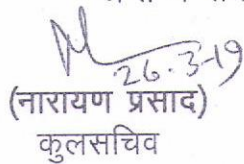 26.3-19
(नारायण प्रसाद)
कुलसचिव